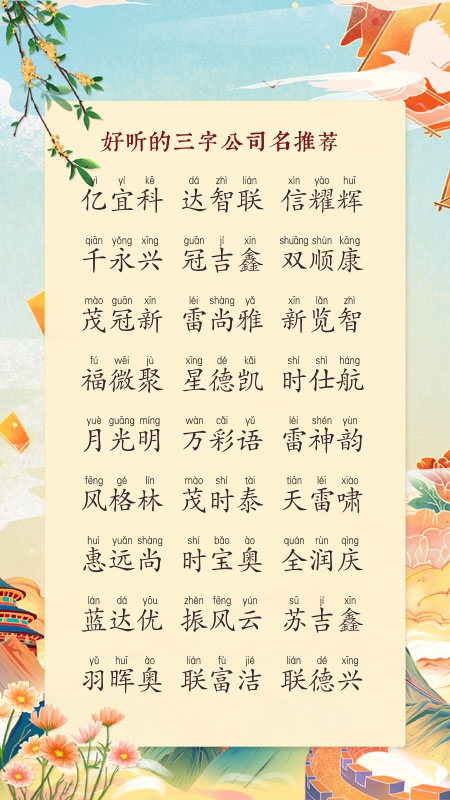 好听的三字公司名推荐
yì yí kē dá zhì lián xìn yào huī
亿宜科 达智联 信耀辉
qiān yǒng xīng guān jí xīn shuāng shùn kāng
千永兴 冠吉鑫 双顺康
mào guān xīn léi shàng yǎ xīn lǎn zhì
茂冠新 雷尚雅 新览智
fú wēi jù xīng dé kǎi shí shì háng
福微聚 星德凯 时仕航
yuè guāng míng wàn cǎi yǔ léi shén yùn
月光明 万彩语 雷神韵
fēng gé lín mào shí tài tiān léi xiào
风格林 茂时泰 天雷啸
huì yuǎn shàng shí bǎo ào quán rùn qìng
惠远尚 时宝奥 全润庆
lán dá yōu zhèn fēng yún sū jí xīn
蓝达优 振风云 苏吉鑫
yǔ huī ào lián fù jié lián dé xīng
羽晖奥 联富洁 联德兴